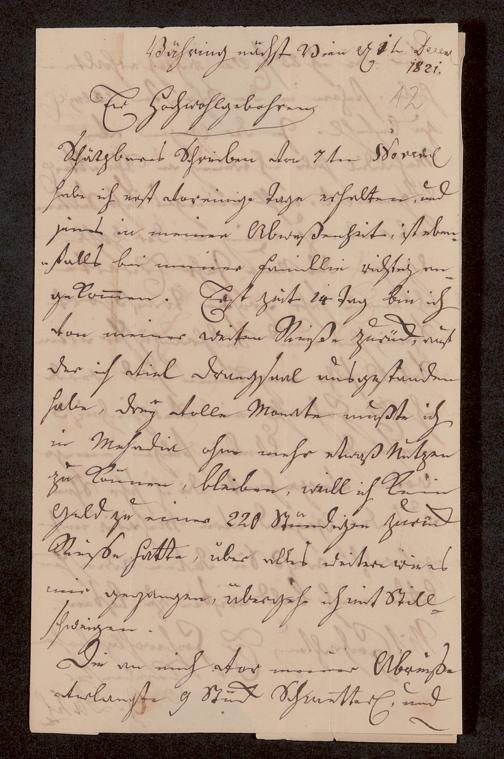 Währing nächst Wien d 1t Decem
1821.
42
Eu Hochwohlgebohren
Schätzbares Schreiben von 7ten Novemb
habe ich erst vor einige Tage erhalten, und
jenes in meiner Abweßenheit, ist eben-
falls bei meiner Familie richtig an-
gekommen. Erst seit 14 Tag bin ich
von meiner weiten Reiße zurück, auf
der ich viel Drangsaal ausgestanden
habe, drey volle Monate mußte ich
in Mehadia ohne mehr etwaß Nutzen
zu können, bleiben, weill ich kein
Geld zu einer 220 Stündigen zurück
Reiße hatte, über alles weitere wie es
mir gegangen, übergehe ich mit Still-
schweigen.
Die an mich vor meiner Abreiße
verlangte 9 Stück Schmetterl, und